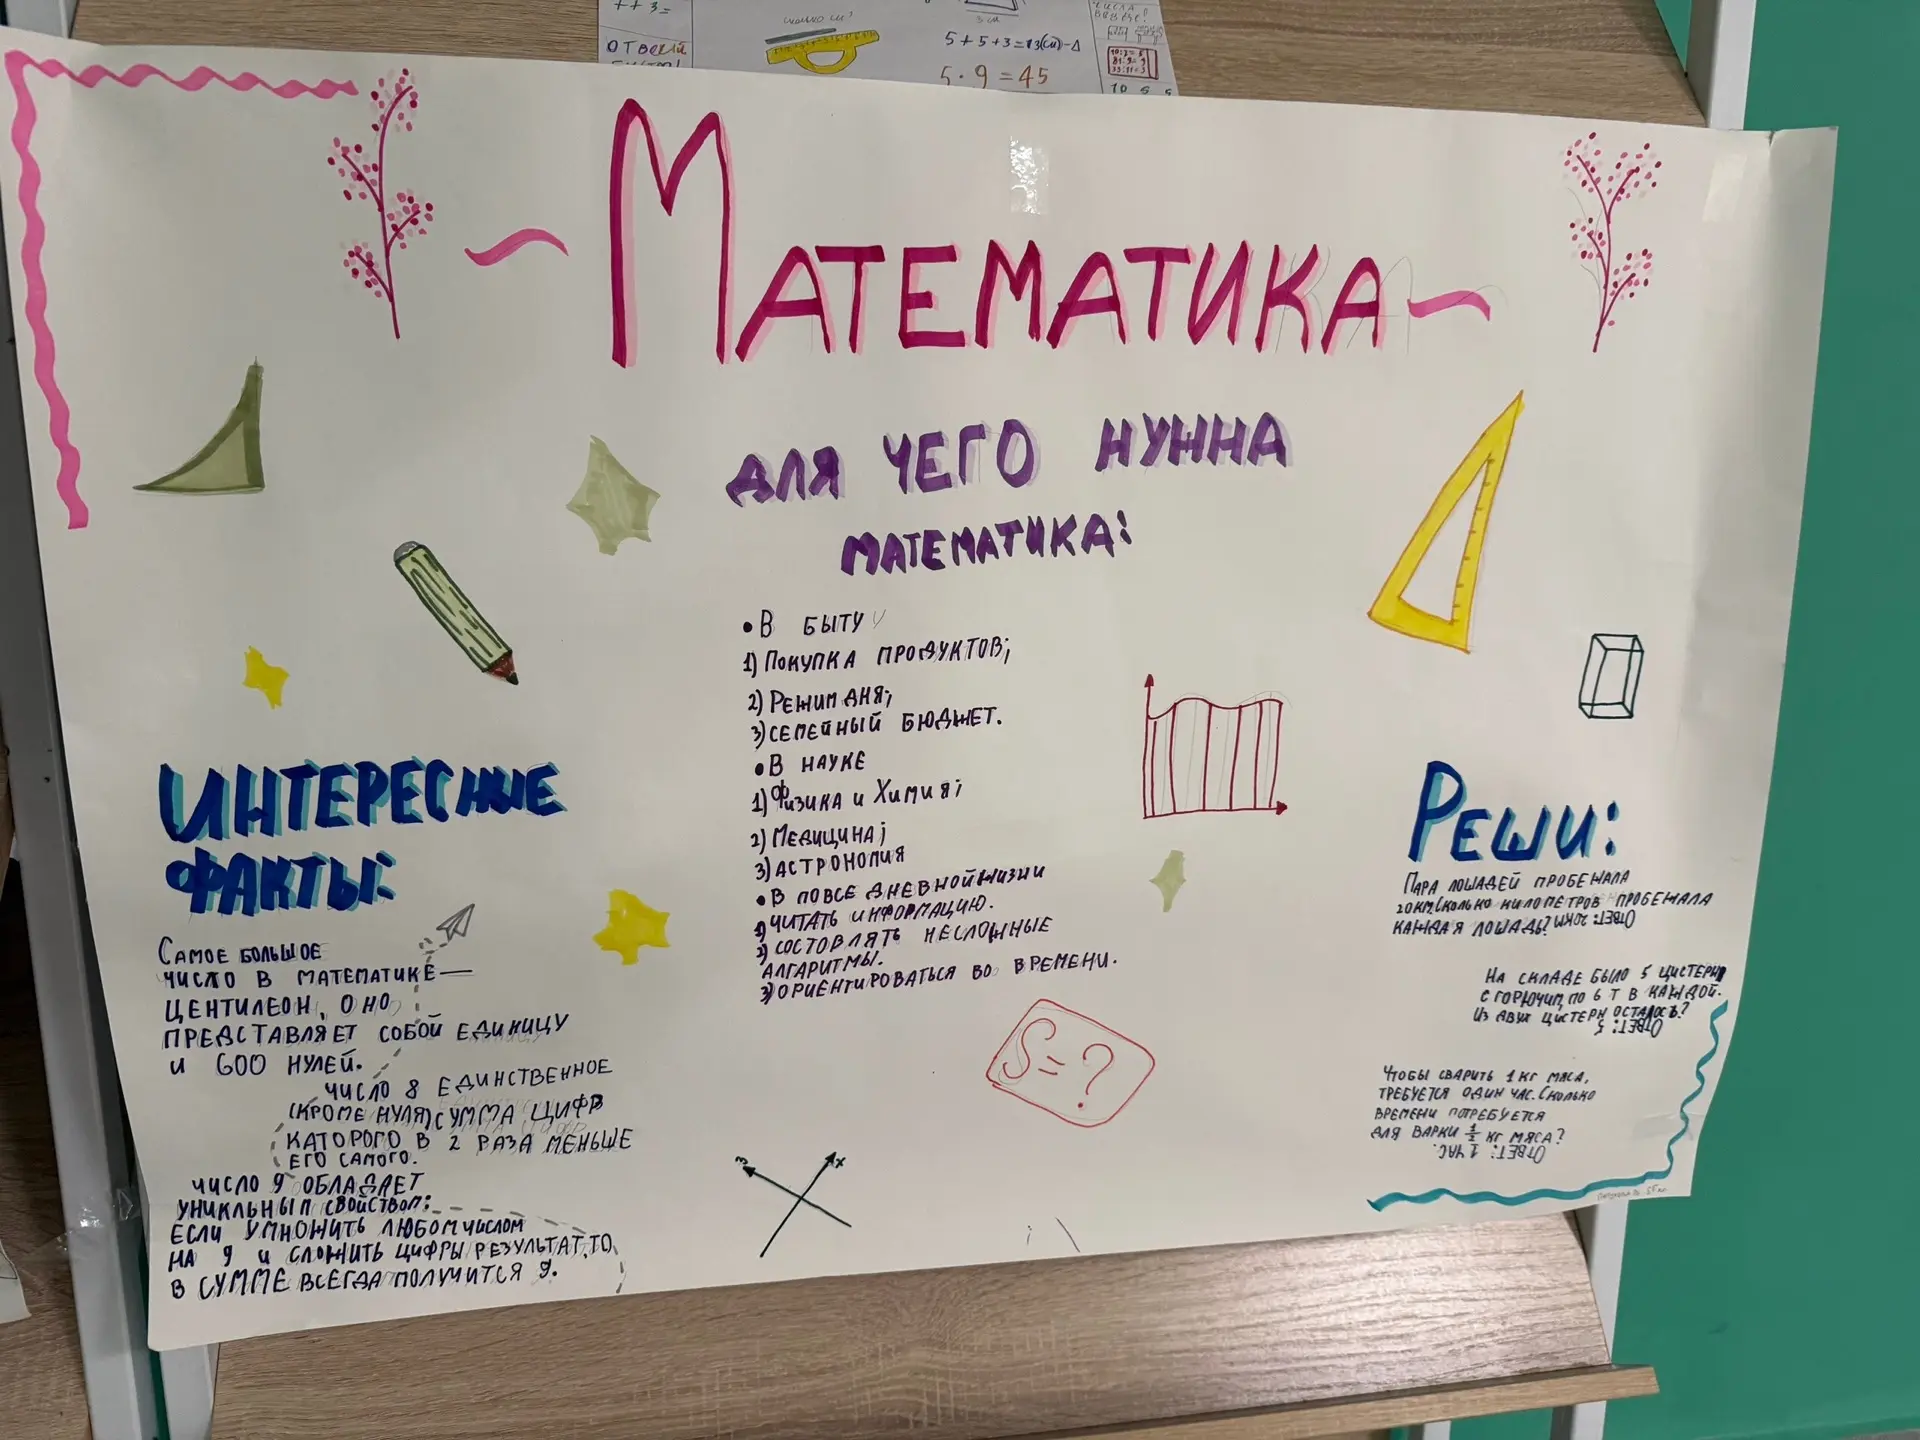 ++3=
ОТВЕТЬ
СКОЛЬКО СМ?
3 см
5+5+3=13(см)-Δ
5·9=45
МАТЕМАТИКА
ДЛЯ ЧЕГО НУЖНА
МАТЕМАТИКА:
• В БЫТУ
1) ПОКУПКА ПРОДУКТОВ;
2) РЕЖИМ ДНЯ;
3) СЕМЕЙНЫЙ БЮДЖЕТ.
• В НАУКЕ
1) ФИЗИКА И ХИМИЯ;
2) МЕДИЦИНА;
3) АСТРОНОМИЯ
• В ПОВСЕДНЕВНОЙ ЖИЗНИ
1) ЧИТАТЬ ИНФОРМАЦИЮ.
2) СОСТОВЛЯТЬ НЕСЛОЖНЫЕ
АЛГАРИТМЫ.
3) ОРИЕНТИРОВАТЬСЯ ВО ВРЕМЕНИ.
S=?
x
ИНТЕРЕСНЫЕ
ФАКТЫ:
САМОЕ БОЛЬШОЕ
ЧИСЛО В МАТЕМАТИКЕ—
ЦЕНТИЛЕОН, ОНО
ПРЕДСТАВЛЯЕТ СОБОЙ ЕДИНИЦУ
И 600 НУЛЕЙ.
ЧИСЛО 8 ЕДИНСТВЕННОЕ
(КРОМЕ НУЛЯ) СУММА ЦИФР
КАТОРОГО В 2 РАЗА МЕНЬШЕ
ЕГО САМОГО.
ЧИСЛО 9 ОБЛАДАЕТ
УНИКЛЬНЫМ СВОЙСТВОМ:
ЕСЛИ УМНОЖИТЬ ЛЮБОМ ЧИСЛОМ
НА 9 И СЛОЖИТЬ ЦИФРЫ РЕЗУЛЬТАТ, ТО
В СУММЕ ВСЕГДА ПОЛУЧИТСЯ 9.
РЕШИ:
ПАРА ЛОШАДЕЙ ПРОБЕЖАЛА
20 КМ. СКОЛЬКО КИЛОМЕТРОВ ПРОБЕЖАЛА
КАЖДАЯ ЛОШАДЬ? ОТВЕТ: 20КМ
НА СКЛАДЕ БЫЛО 5 ЦИСТЕРН
С ГОРЮЧИМ, ПО 6 Т В КАЖДОЙ.
ИЗ ДВУХ ЦИСТЕРН ОСТАЛОСЬ?
ОТВЕТ: 5
ЧТОБЫ СВАРИТЬ 1 КГ МЯСА,
ТРЕБУЕТСЯ ОДИН ЧАС. СКОЛЬКО
ВРЕМЕНИ ПОТРЕБУЕТСЯ
ДЛЯ ВАРКИ 1/2 КГ МЯСА?
ОТВЕТ: 1 ЧАС.